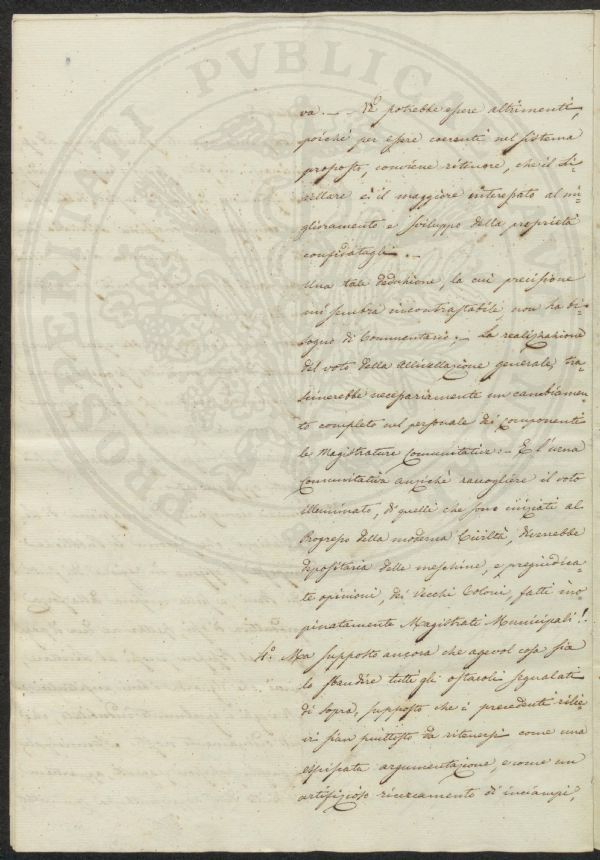 va. — Nè potrebbe essere altrimenti,
poichè per essere coerenti nel sistema
proposto, conviene ritenere, che il Li-
vellare è il maggiore interessato al mi-
glioramento e sviluppo della proprietà
confidatagli. —
Una tale deduzione, la cui precisione
mi sembra incontrastabile, non ha bi-
sogno di Commentario; — La realizzazione
del voto della allivellazione generale, tra-
scinerebbe necessariamente un cambiamen-
to completo nel personale dei componenti
le Magistrature Comunitative: — E l'urna
Comunitativa anzichè raccogliere il voto
illuminato, di quelli che sono iniziati al
Progresso della moderna Civiltà, diverrebbe
depositaria delle meschine, e pregiudica-
te opinioni, dei Vecchi Coloni, fatti ino-
pinatamente Magistrati Municipali!.
4.° Ma supposto ancora che agevol cosa sia
lo sbandire tutti gli ostacoli segnalati
di sopra, supposto che i precedenti rilie-
vi sian piuttosto da ritenersi come una
argumentazione, e come un
artifizioso ricercamento di inciampi,
PROSPERITATI PVBLICAE